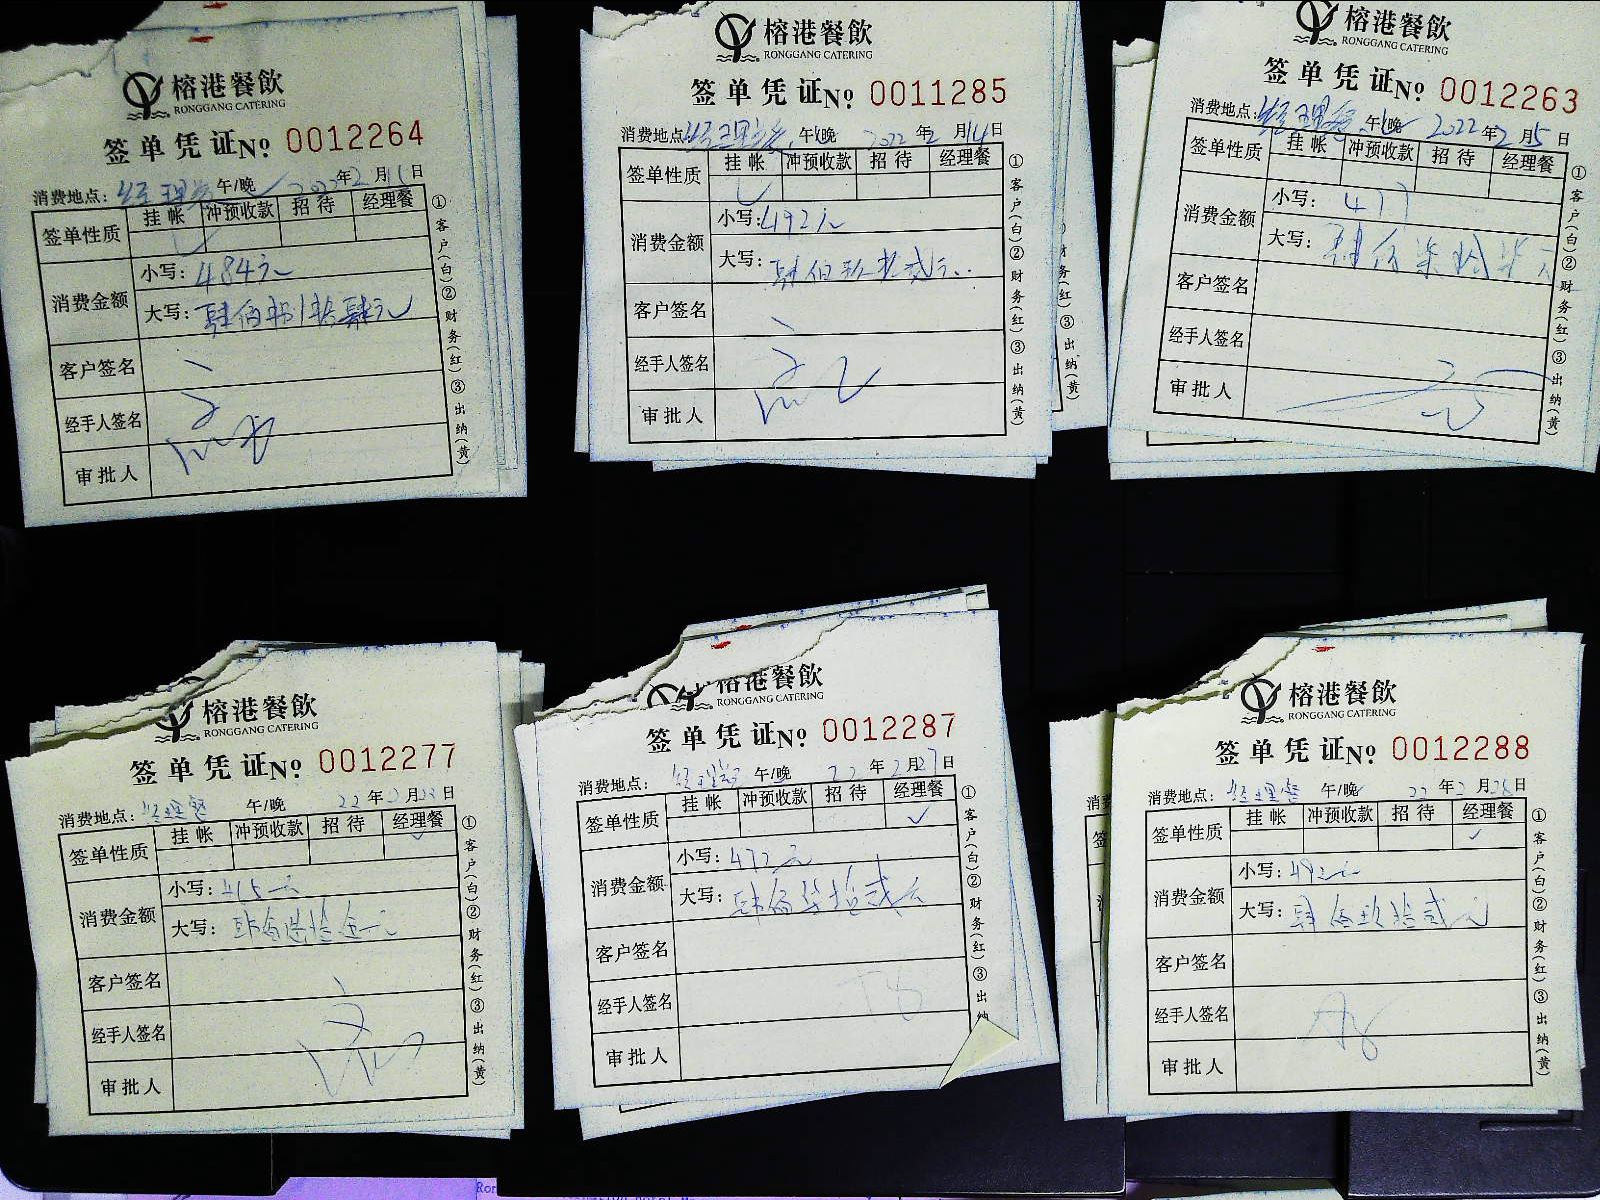 榕港餐飲
RONGGANG CATERING
签单凭证No 0012264
消费地点：经理餐 午/晚 2022年2月11日
签单性质 挂帐 冲预收款 招待 经理餐
消费金额 小写：484元
大写：肆佰捌拾肆元
客户签名
经手人签名
审批人
①客户(白)②财务(红)③出纳(黄)
榕港餐飲
RONGGANG CATERING
签单凭证No 0011285
消费地点：经理餐 午/晚 2022年2月14日
签单性质 挂帐 冲预收款 招待 经理餐
消费金额 小写：492元
大写：肆佰玖拾贰元
客户签名
经手人签名
审批人
①客户(白)②财务(红)③出纳(黄)
榕港餐飲
RONGGANG CATERING
签单凭证No 0012263
消费地点：经理餐 午/晚 2022年2月5日
签单性质 挂帐 冲预收款 招待 经理餐
消费金额 小写：477
大写：肆佰柒拾柒元
客户签名
经手人签名
审批人
①客户(白)②财务(红)③出纳(黄)
榕港餐飲
RONGGANG CATERING
签单凭证No 0012277
消费地点：经理餐 午/晚 22年2月 日
签单性质 挂帐 冲预收款 招待 经理餐
消费金额 小写：
大写：
客户签名
经手人签名
审批人
①客户(白)②财务(红)③出纳(黄)
榕港餐飲
RONGGANG CATERING
签单凭证No 0012287
消费地点：经理餐 午/晚 22年2月27日
签单性质 挂帐 冲预收款 招待 经理餐
消费金额 小写：472元
大写：肆佰柒拾贰元
客户签名
经手人签名
审批人
①客户(白)②财务(红)③出纳
榕港餐飲
RONGGANG CATERING
签单凭证No 0012288
消费地点：经理餐 午/晚 22年2月28日
签单性质 挂帐 冲预收款 招待 经理餐
消费金额 小写：492元
大写：肆佰玖拾贰元
客户签名
经手人签名
审批人
①客户(白)②财务(红)③出纳(黄)